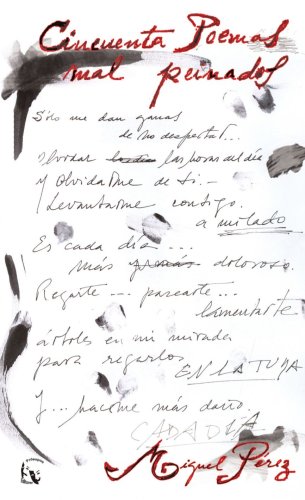 Cincuenta Poemas
mal peinados
Sólo me dan ganas
de no despertar...
olvidar las horas del día
y olvidarme de ti.-
Levantarme contigo.
a mi lado
Es cada día....
más doloroso.
Regarte... pasearte...
lamentarte
árboles en mi mirada
para regarlos
EN LA TUYA
Y... hacerme más daño.
CADA DIA
Miguel Pérez